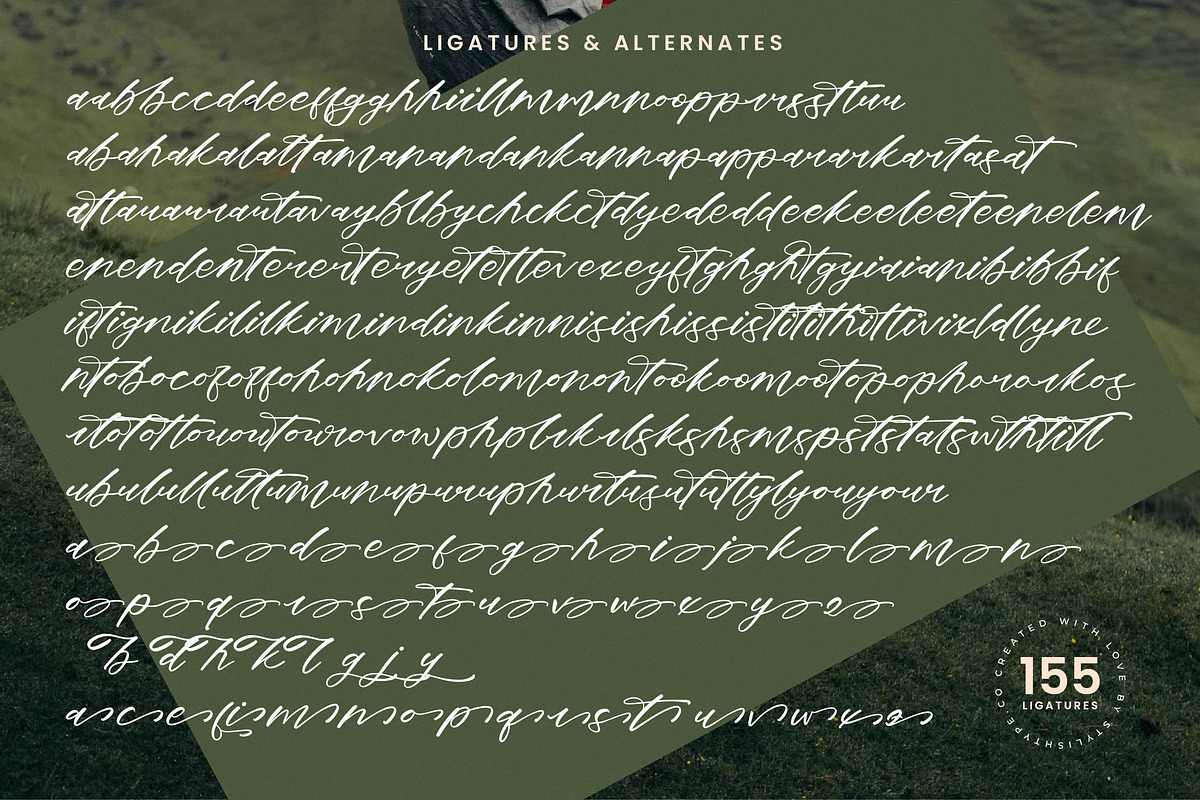 LIGATURES & ALTERNATES
aabbccddeeffgghhiillmmnnooppırssstttuu
abahakalattamanandankannapapparararkartasat
attauauırautavayblbychckctdyededdeekeeleeteenelem
enendentererteryetettevexeyftghghtgyiaianibibbif
iftignikililkimindinkinnisishississtititthittivixldlyne
ntobocofoffohohnokolomonontookoomootopophororkos
rtototououtowrovowphplrkrlskshsmspststatswthtitl
ubululluttumununupuruphurtusututtylyouyour
a b c d e f g h i j k l m n
o p q r s t u v w x y z
b d h k l g j y
a c e f i m n o p q r s t u v w x z
CREATED WITH LOVE BY STYLISHTYPE CO
155
LIGATURES